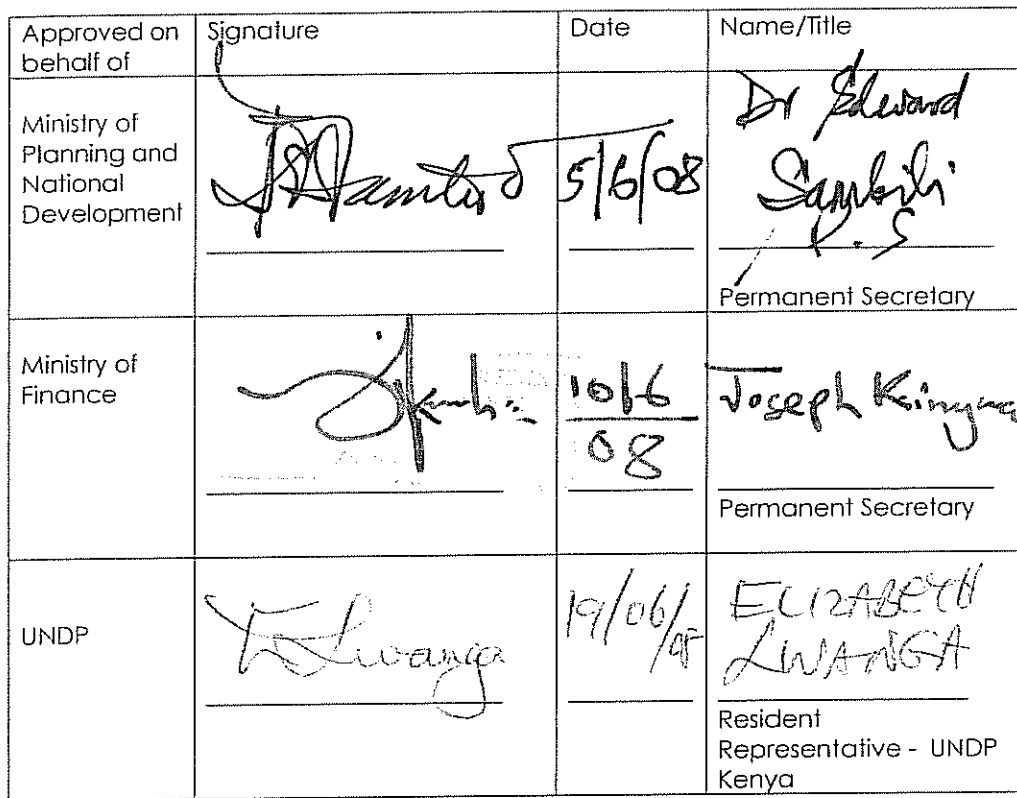 Approved on
behalf of
Signature
Date
Name/Title
Ministry of
Planning and
National
Development
5/6/08
Dr Edward
Sambili
P.S
Permanent Secretary
Ministry of
Finance
10/6
08
Joseph Kinyua
Permanent Secretary
UNDP
ELwanga
19/06/08
ELIZABETH
LWANGA
Resident
Representative - UNDP
Kenya